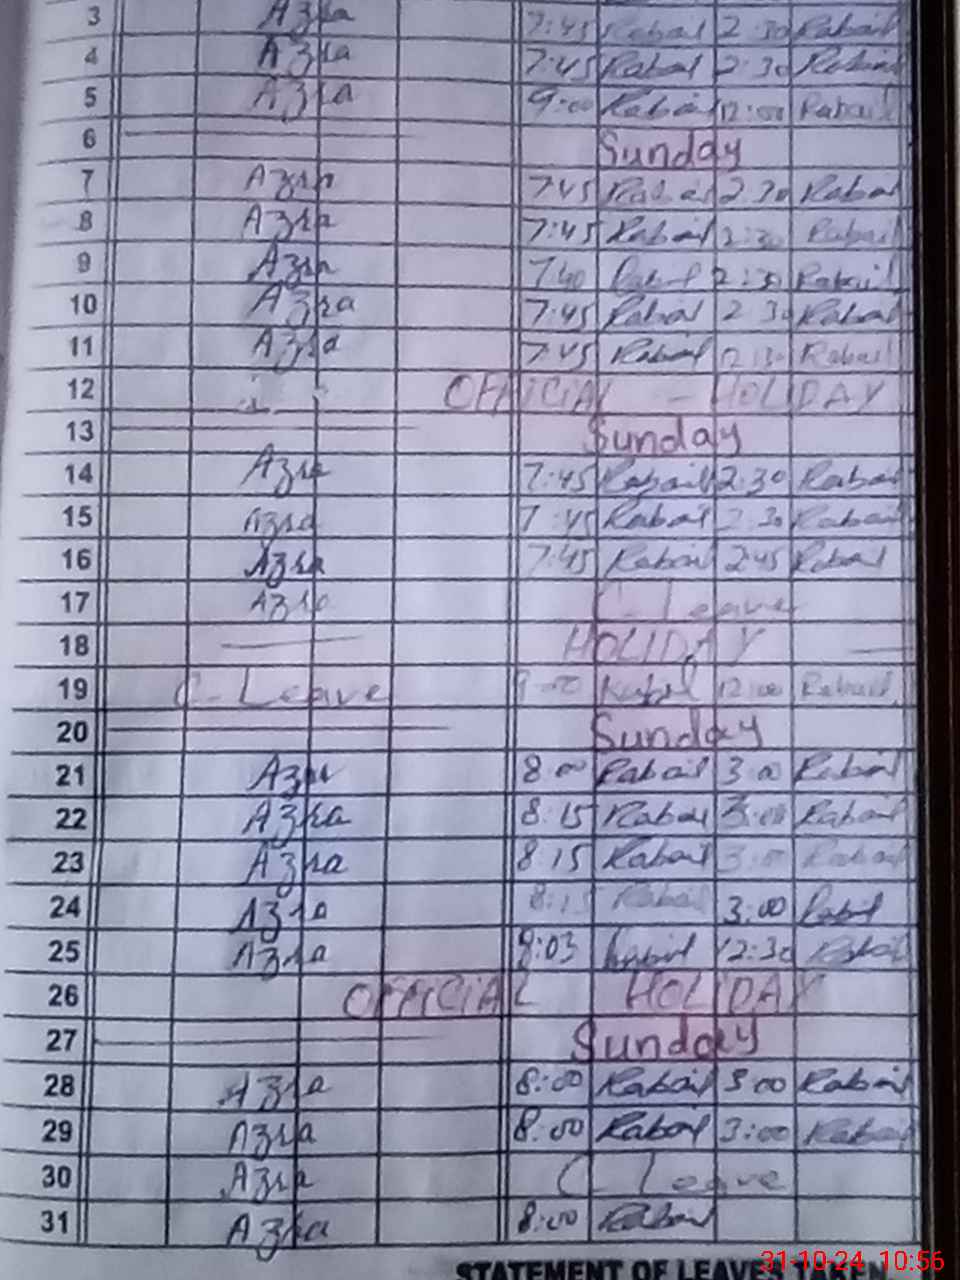 3 Azra 7:45 Rabail 2:30 Rabail
4 Azra 7:45 Rabail 2:30 Rabail
5 Azra 9:00 Rabail 12:00 Rabail
6 Sunday
7 Azra 7:45 Rabail 2:30 Rabail
8 Azra 7:45 Rabail 2:30 Rabail
9 Azra 7:40 Rabail 2:30 Rabail
10 Azra 7:45 Rabail 2:30 Rabail
11 Azra 7:45 Rabail 12:30 Rabail
12 OFFICIAL - HOLIDAY
13 Sunday
14 Azra 7:45 Rabail 2:30 Rabail
15 Azra 7:45 Rabail 2:30 Rabail
16 Azra 7:45 Rabail 2:45 Rabail
17 Azra C-Leave
18 HOLIDAY
19 C-Leave 9:00 Rabail 12:00 Rabail
20 Sunday
21 Azra 8:00 Rabail 3:00 Rabail
22 Azra 8:15 Rabail 3:00 Rabail
23 Azra 8:15 Rabail 3:00 Rabail
24 Azra 8:15 Rabail 3:00 Rabail
25 Azra 8:03 Rabail 12:30 Rabail
26 OFFICIAL HOLIDAY
27 Sunday
28 Azra 8:00 Rabail 3:00 Rabail
29 Azra 8:00 Rabail 3:00 Rabail
30 Azra C Leave
31 Azra 8:00 Rabail
STATEMENT OF LEAVE
31-10-24 10:56